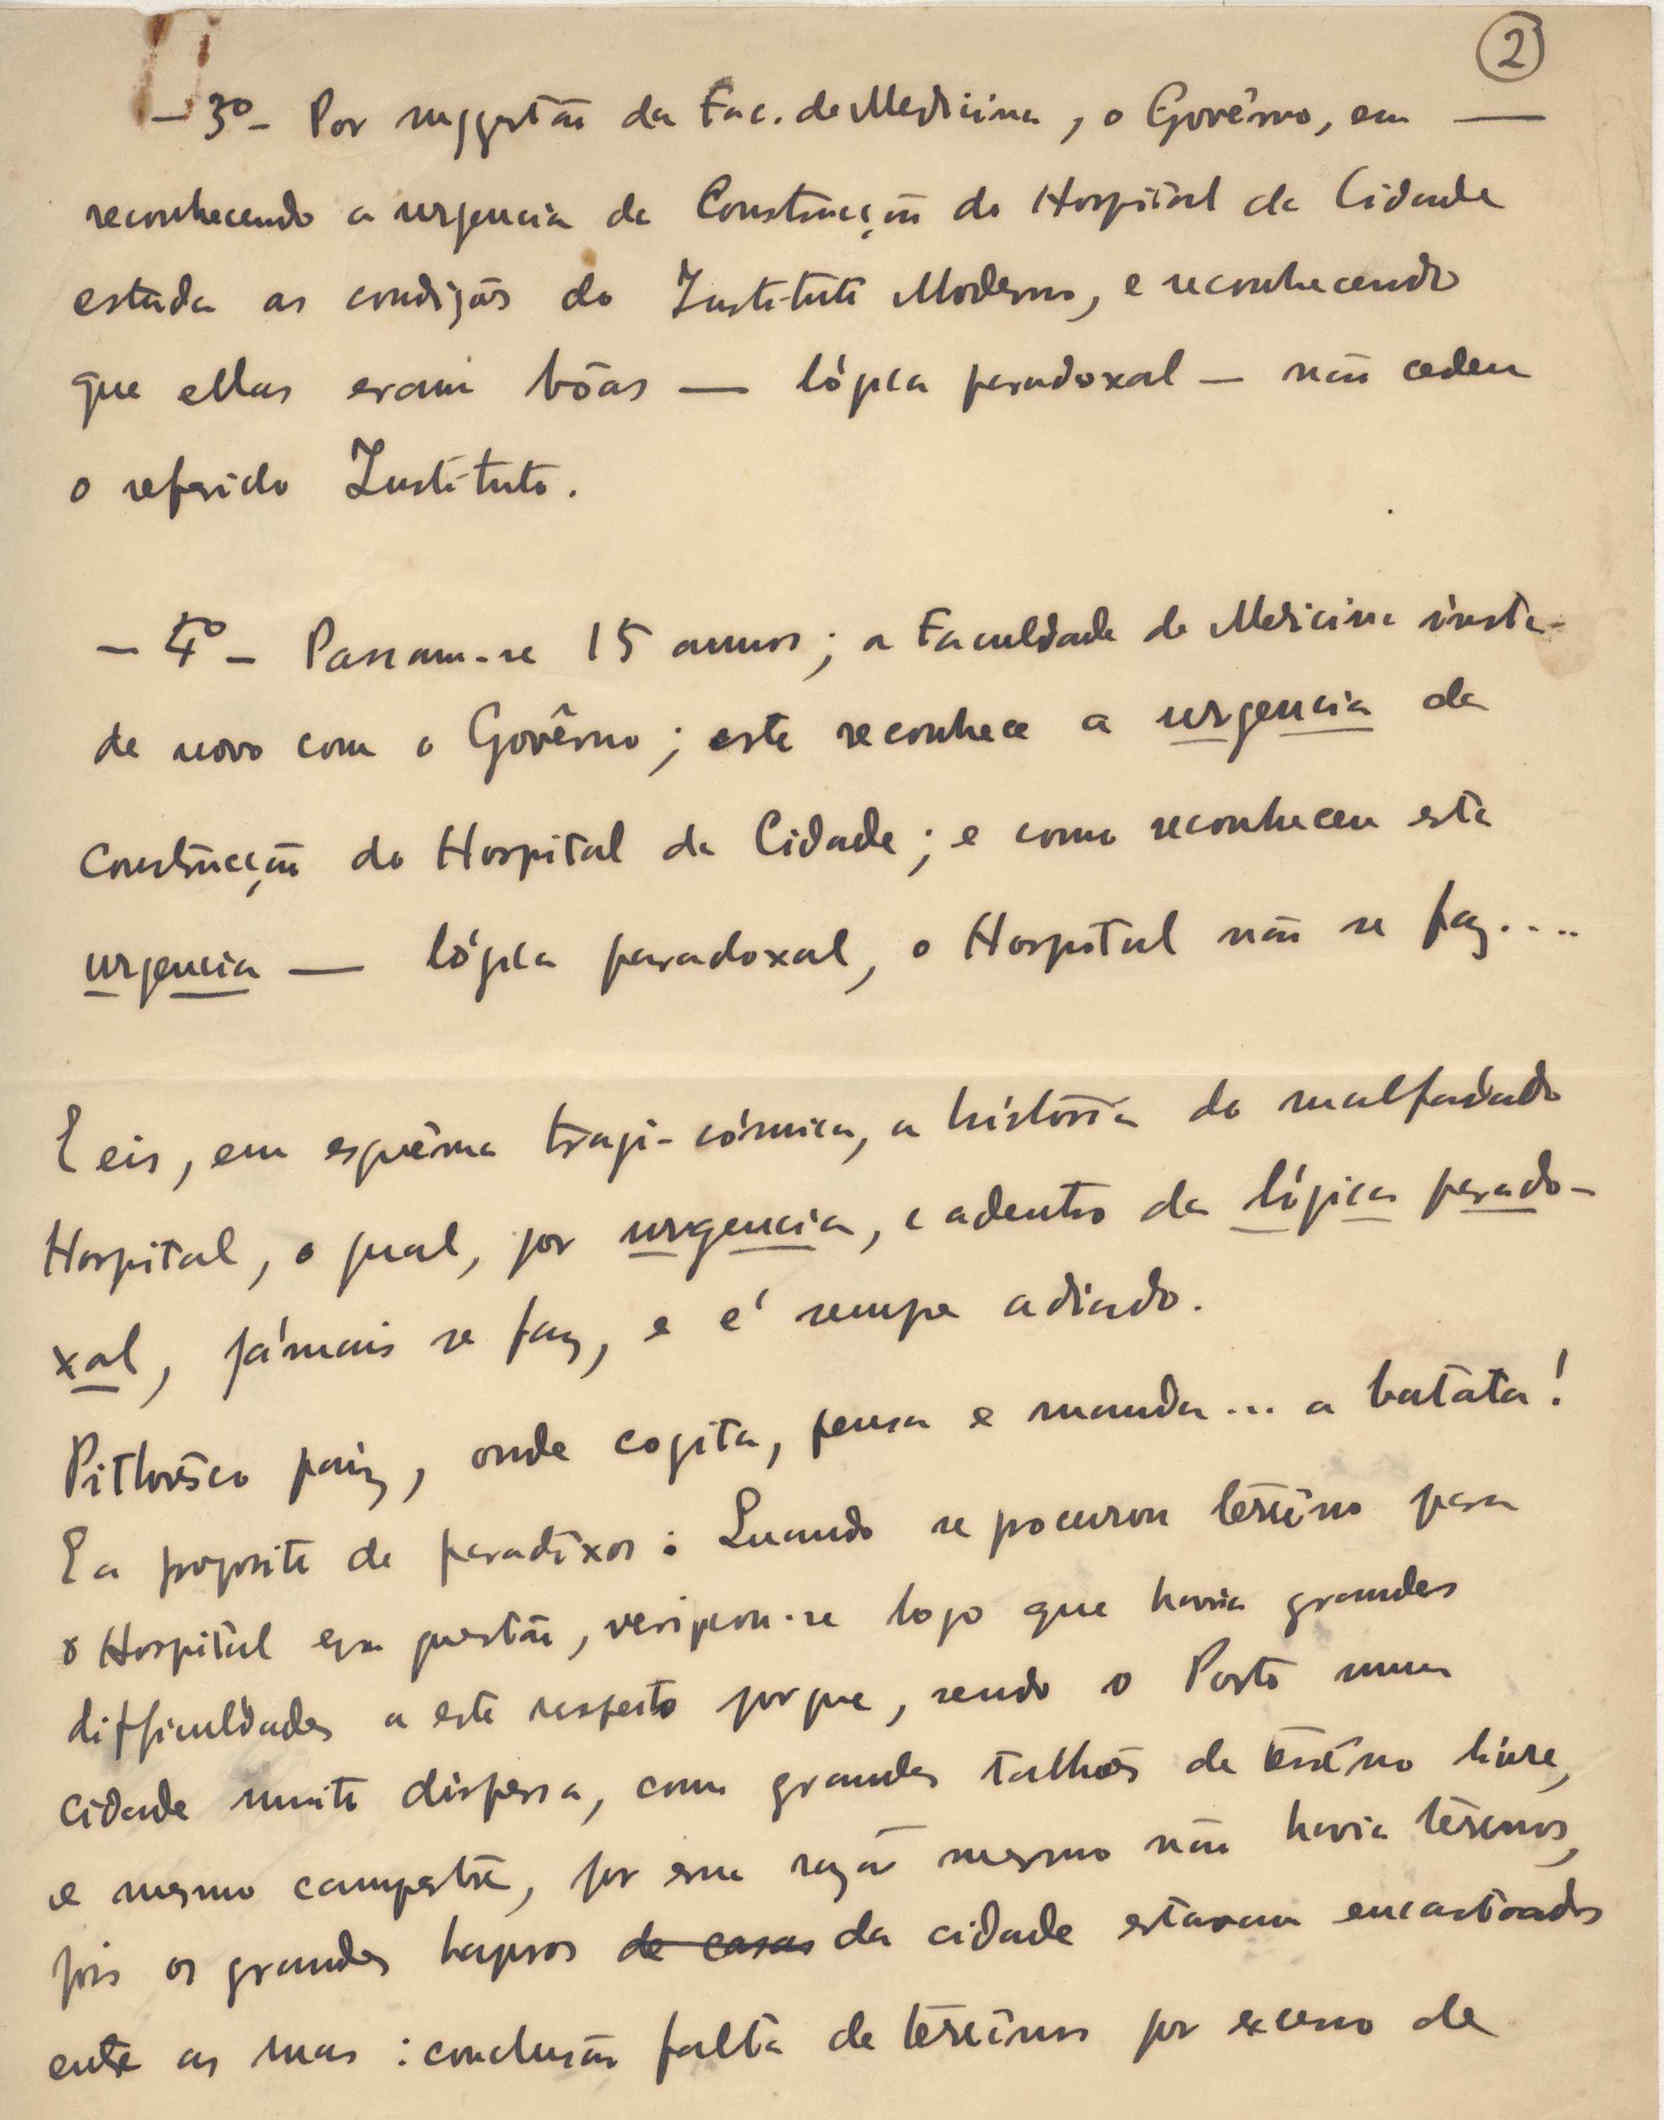 2
- 3º - Por suggestão da Fac. de Medicina, o Govêrno, em —
reconhecendo a urgencia da Construcção do Hospital da Cidade
estuda as condições do Instituto Moderno, e reconhecendo
que ellas eram bôas — lógica paradoxal — não cedeu
o referido Instituto.
- 4º - Passam-se 15 annos; a Faculdade de Medicina insta-
de novo com o Govêrno; este reconhece a urgencia da
Construcção do Hospital da Cidade; e como reconheceu esta
urgencia — lógica paradoxal, o Hospital não se faz....
E eis, em esquêma tragi-cómico, a história do malfadado
Hospital, o qual, por urgencia, e adentro da lógica parado-
xal, jámais se faz, e é sempre adiado.
Pithorêsco paiz, onde cogita, pensa e manda... a batata!
E a proposito de paradóxos: Quando se procurou terrêno para
o Hospital em questão, verificou-se logo que havia grandes
difficuldades a este respeito porque, sendo o Porto uma
cidade muito dispersa, com grandes talhões de terrêno livre,
e mesmo campestre, por essa razão mesmo não havia terrenos,
pois os grandes de casas da cidade estavam encastoados
entre as ruas: conclusão falta de terrênos por excesso de